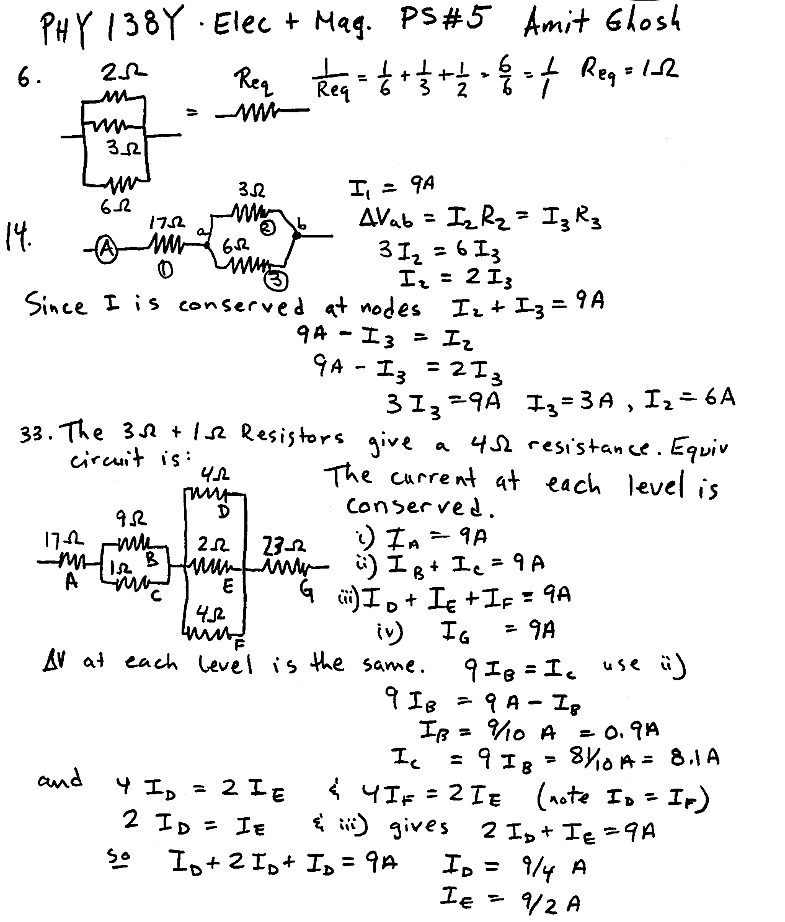 PHY 138Y · Elec + Mag. PS#5 Amit Ghosh
6. 2Ω 3Ω 6Ω = Req 1/Req = 1/6 + 1/3 + 1/2 = 6/6 = 1/1 Req = 1Ω
14. A 17Ω ① a 3Ω ② 6Ω ③ b
I₁ = 9A
ΔVab = I₂R₂ = I₃R₃
3 I₂ = 6 I₃
I₂ = 2 I₃
Since I is conserved at nodes I₂ + I₃ = 9A
9A - I₃ = I₂
9A - I₃ = 2I₃
3 I₃ = 9A I₃ = 3A , I₂ = 6A
33. The 3Ω + 1Ω Resistors give a 4Ω resistance. Equiv
circuit is:
17Ω A 9Ω B 1Ω C 4Ω D 2Ω E 4Ω F 23Ω G
The current at each level is
conserved.
i) I_A = 9A
ii) I_B + I_C = 9A
iii) I_D + I_E + I_F = 9A
iv) I_G = 9A
ΔV at each level is the same. 9 I_B = I_C use ii)
9 I_B = 9A - I_B
I_B = 9/10 A = 0.9A
I_C = 9 I_B = 81/10 A = 8.1A
and 4 I_D = 2 I_E & 4 I_F = 2 I_E (note I_D = I_F)
2 I_D = I_E & iii) gives 2 I_D + I_E = 9A
so I_D + 2 I_D + I_D = 9A I_D = 9/4 A
I_E = 9/2 A